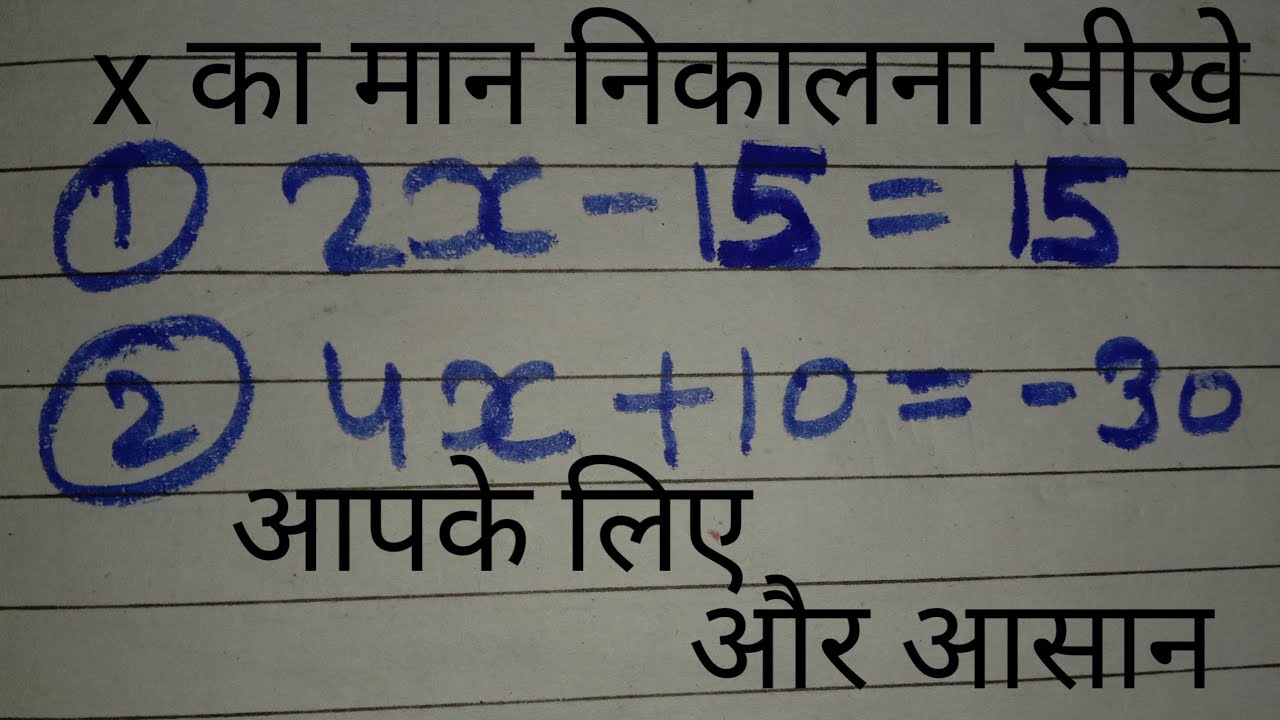 x का मान निकालना सीखे
① 2x - 15 = 15
② 4x + 10 = - 30
आपके लिए
और आसान